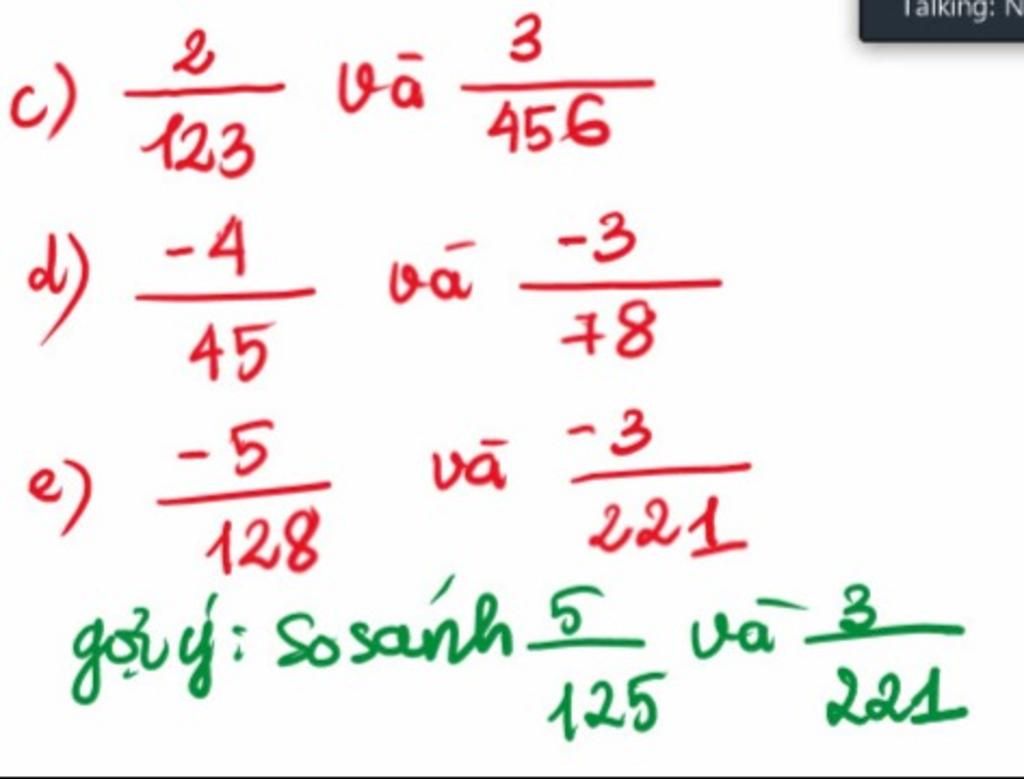 Talking: N
c) 2/123 và 3/456
d) -4/45 và -3/78
e) -5/128 và -3/221
gợi ý: So sánh 5/125 và 3/221